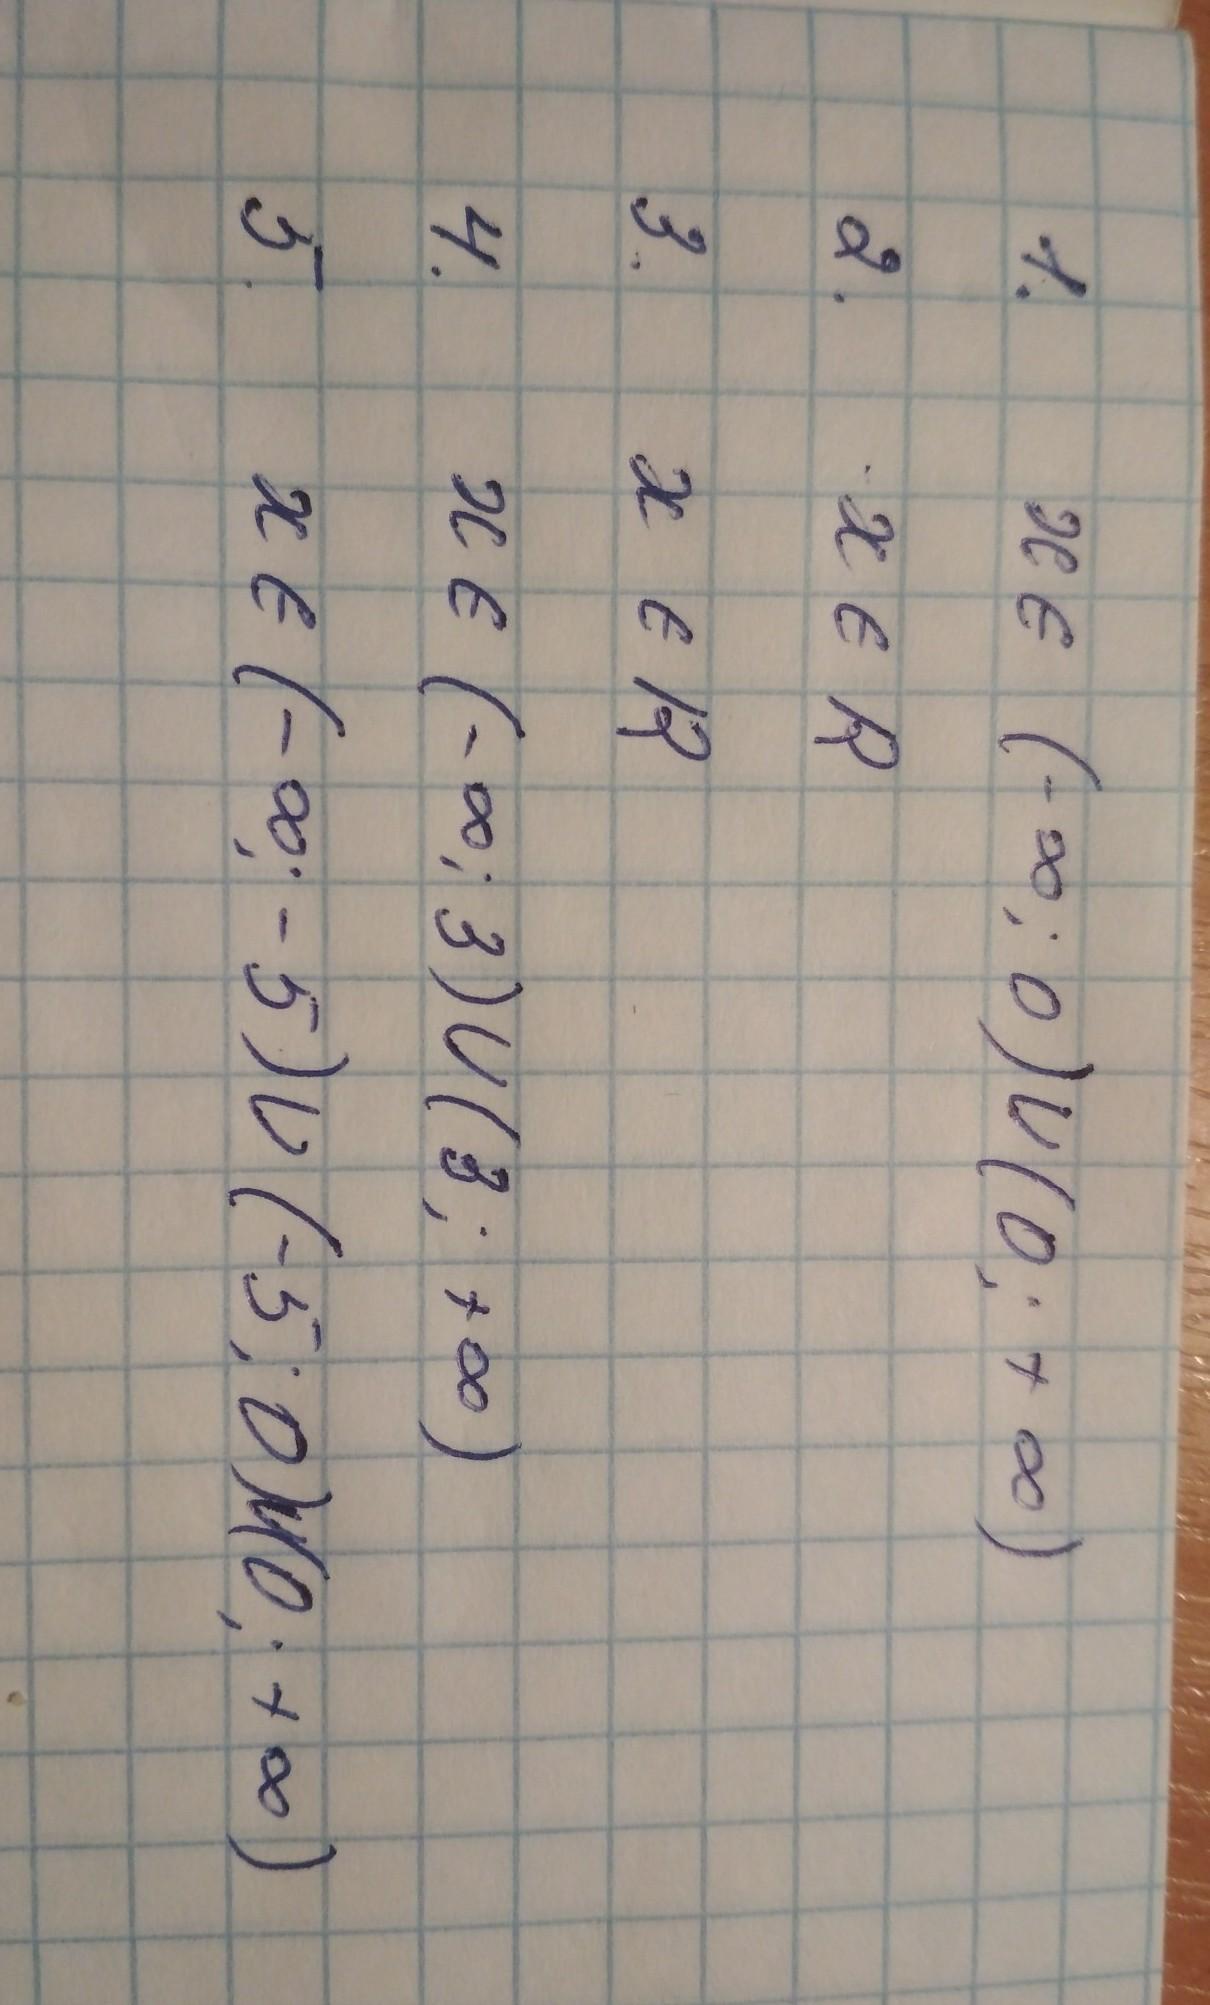 1. x ∈ (-∞; 0) ∪ (0; +∞)
2. x ∈ R
3. x ∈ R
4. x ∈ (-∞; 3) ∪ (3; +∞)
5. x ∈ (-∞; -5) ∪ (-5; 0) ∪ (0; +∞)